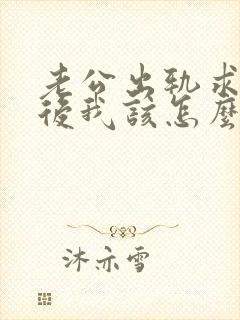 老公出轨求
後我該怎麼
沐亦雪